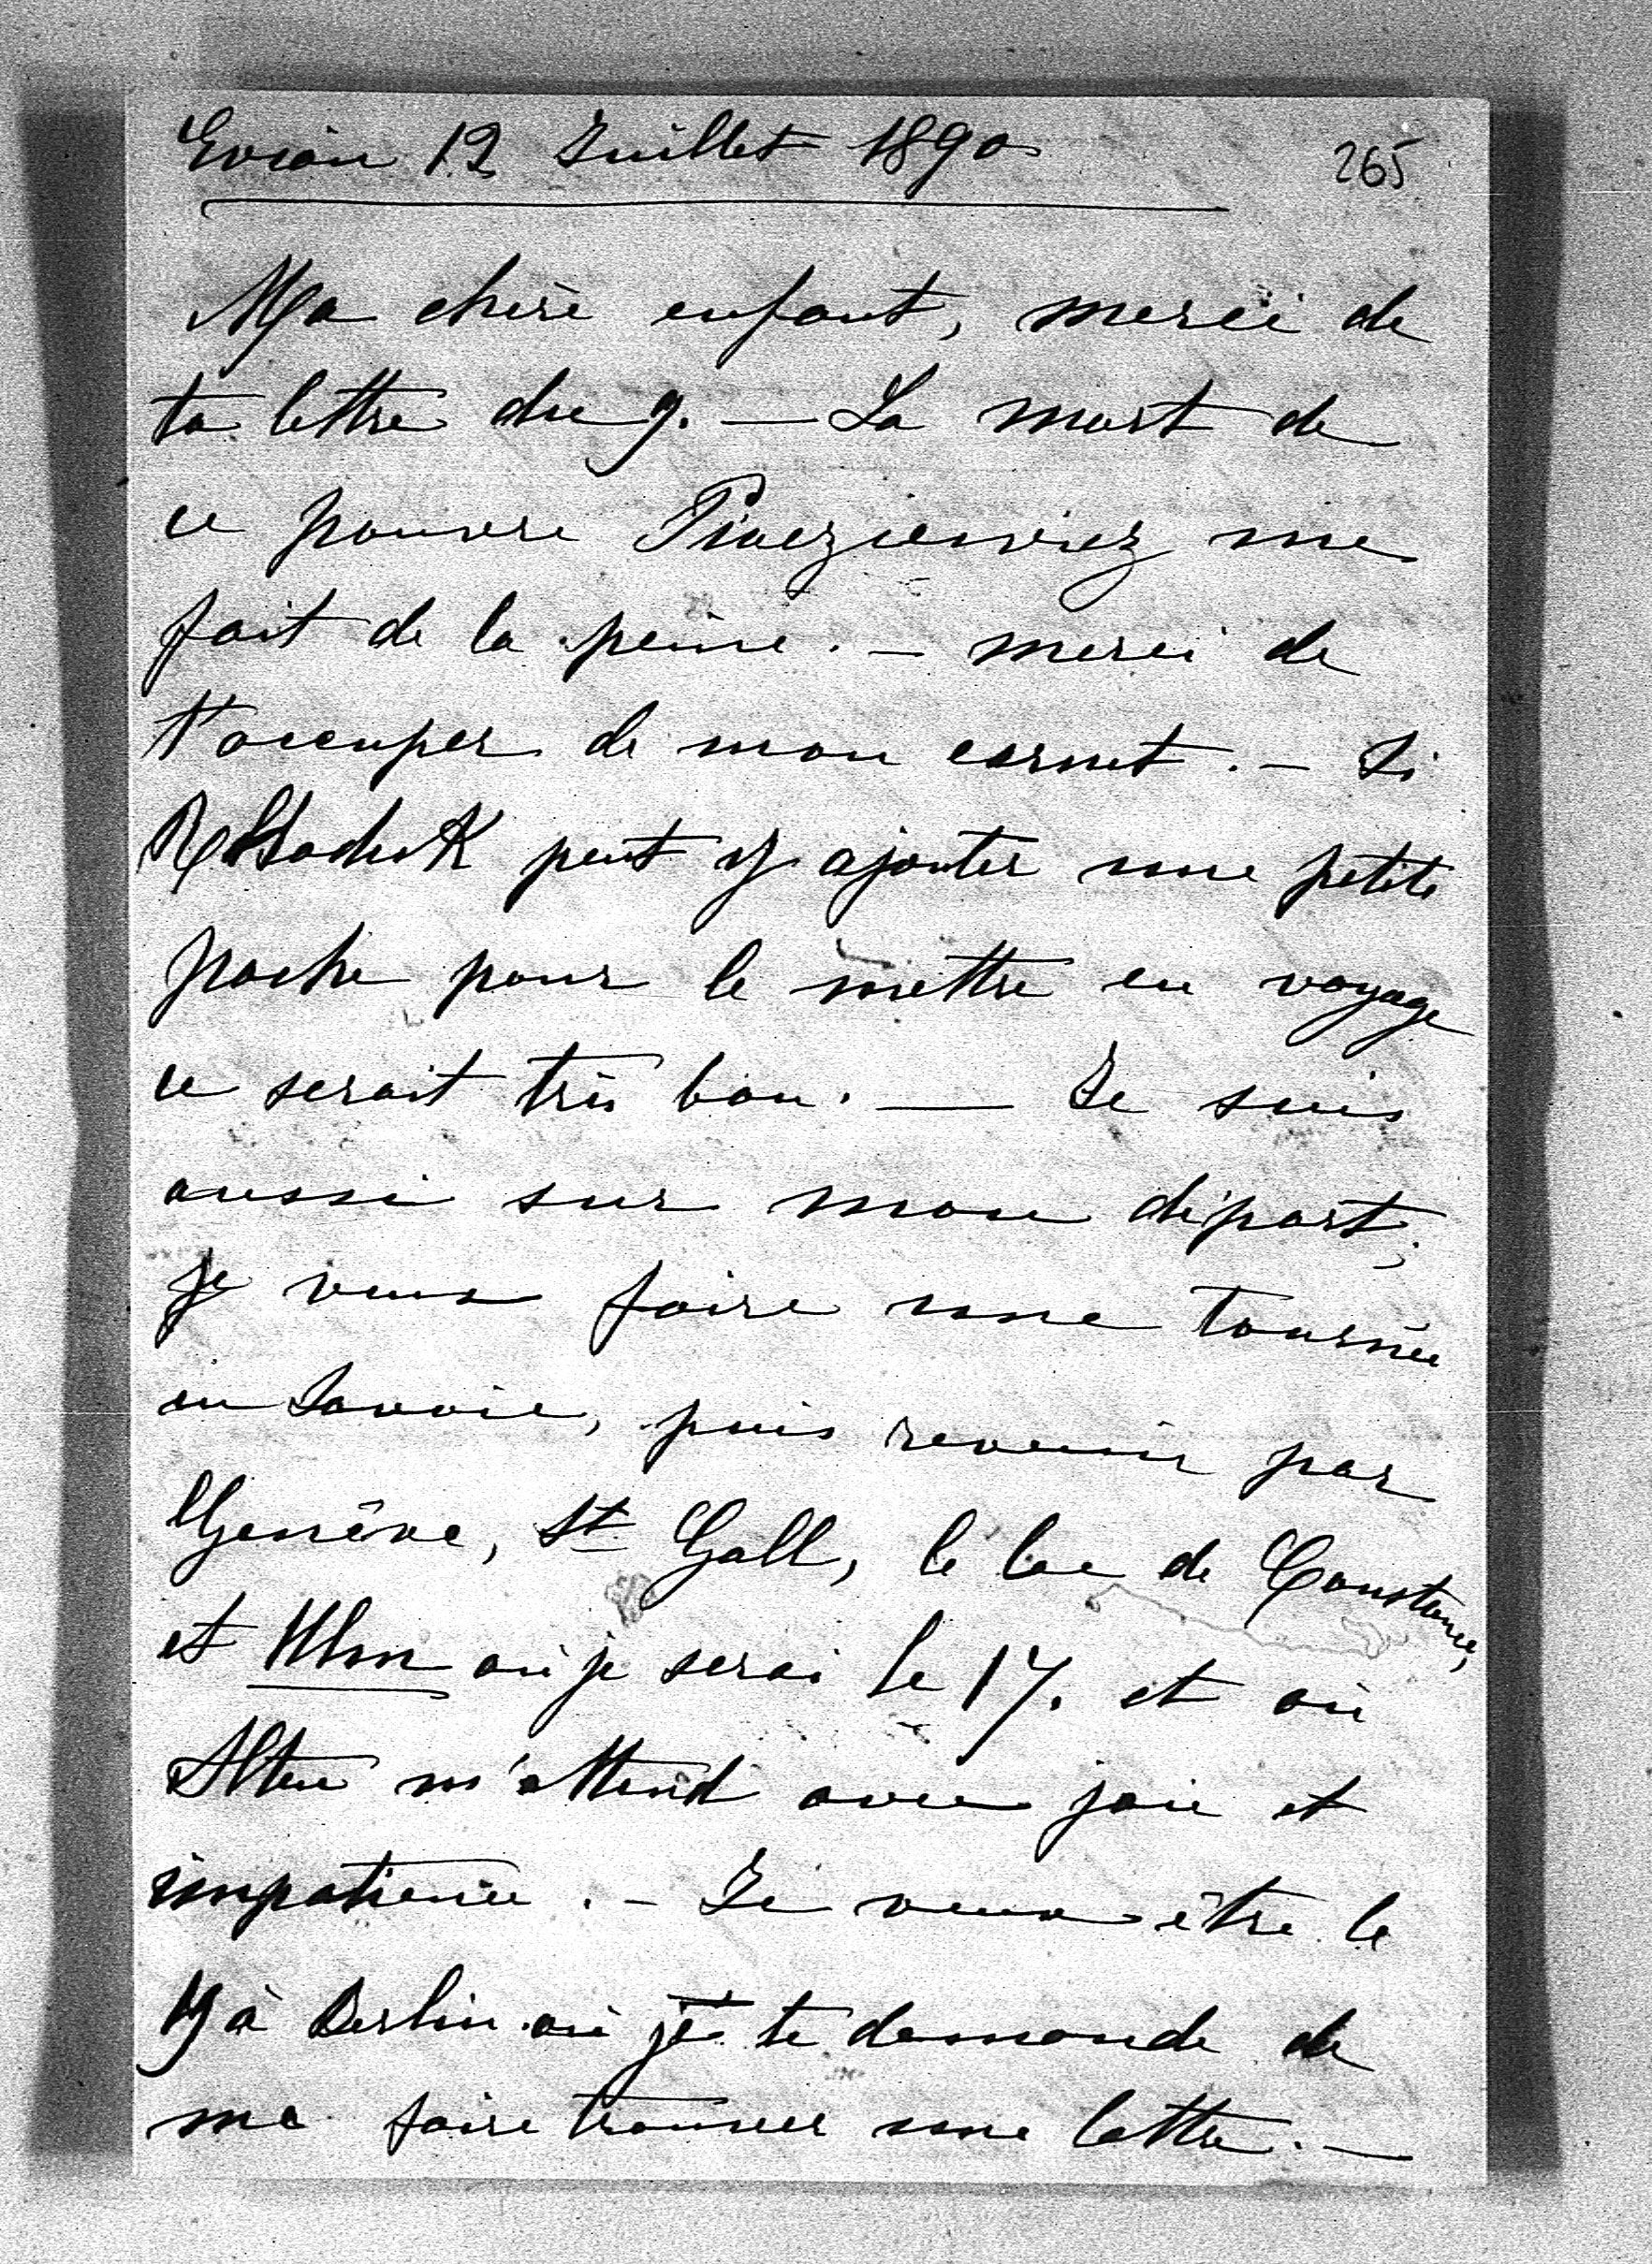 Evian 12 Juillet 1890
265
Ma chère enfant, merci de
ta lettre du 9. — La mort de
ce pauvre me
fait de la peine. — merci de
t'occuper de mon carnet. — Si
peut y ajouter une petite
poche pour le mettre en voyage
ce serait très bon. — Je suis
aussi sur mon départ;
je veux faire une tournée
en Savoie, puis revenir par
Genêve, St Gall, le lac de Constance,
et Ulm où je serai le 17. et où
Alten m'attend avec joie et
impatience. — Je veux être le
à Berlin où je te demande de
me faire trouver une lettre. —